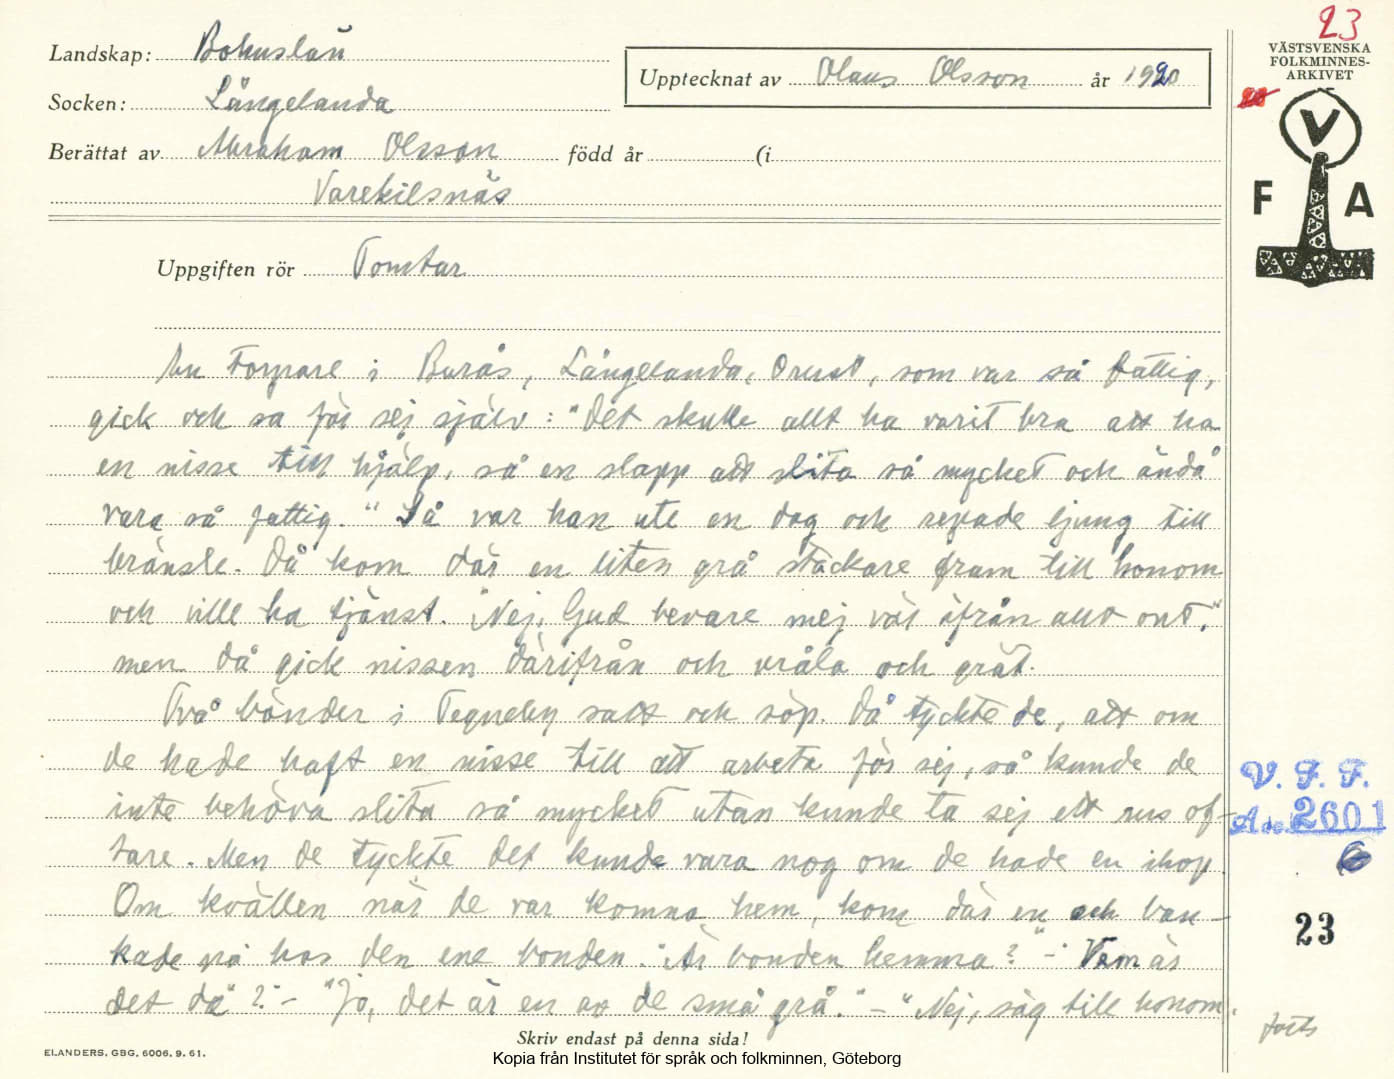 23
Landskap: Bohuslän
Upptecknat av Olaus Olsson år 1920
VÄSTSVENSKA
FOLKMINNES-
ARKIVET
Socken: Långelanda
V
F A
Berättat av Abraham Olsson född år (i
Varekilsnäs
Uppgiften rör Tomtar
En torpare i Burås, Långelanda, Orust, som var så fattig,
gick och sa för sej själv: "Det skulle allt ha varit bra att ha
en nisse till hjälp, så en slapp att slita så mycket och ändå
vara så fattig." Så var han ute en dag och repade ljung till
bränsle. Då kom där en liten grå stackare fram till honom
och ville ha tjänst. "Nej, Gud bevare mej väl ifrån allt ont,"
men då gick nissen därifrån och vråla och grät.
Två bönder i Tegneby satt och söp. Då tyckte de, att om
de hade haft en nisse till att arbeta för sej, så kunde de
inte behöva slita så mycket utan kunde ta sej ett rus of-
tare. Men de tyckte det kunde vara nog om de hade en ihop.
Om kvällen när de var komna hem, kom där en och ban-
kade på hos den ene bonden. "Är bonden hemma?" - "Vem är
det då"? - "Jo, det är en av de små grå." - "Nej, säg till honom
V. F. F.
Acc. 2601
23
forts
Skriv endast på denna sida!
ELANDERS, GBG, 6006. 9. 61.
Kopia från Institutet för språk och folkminnen, Göteborg